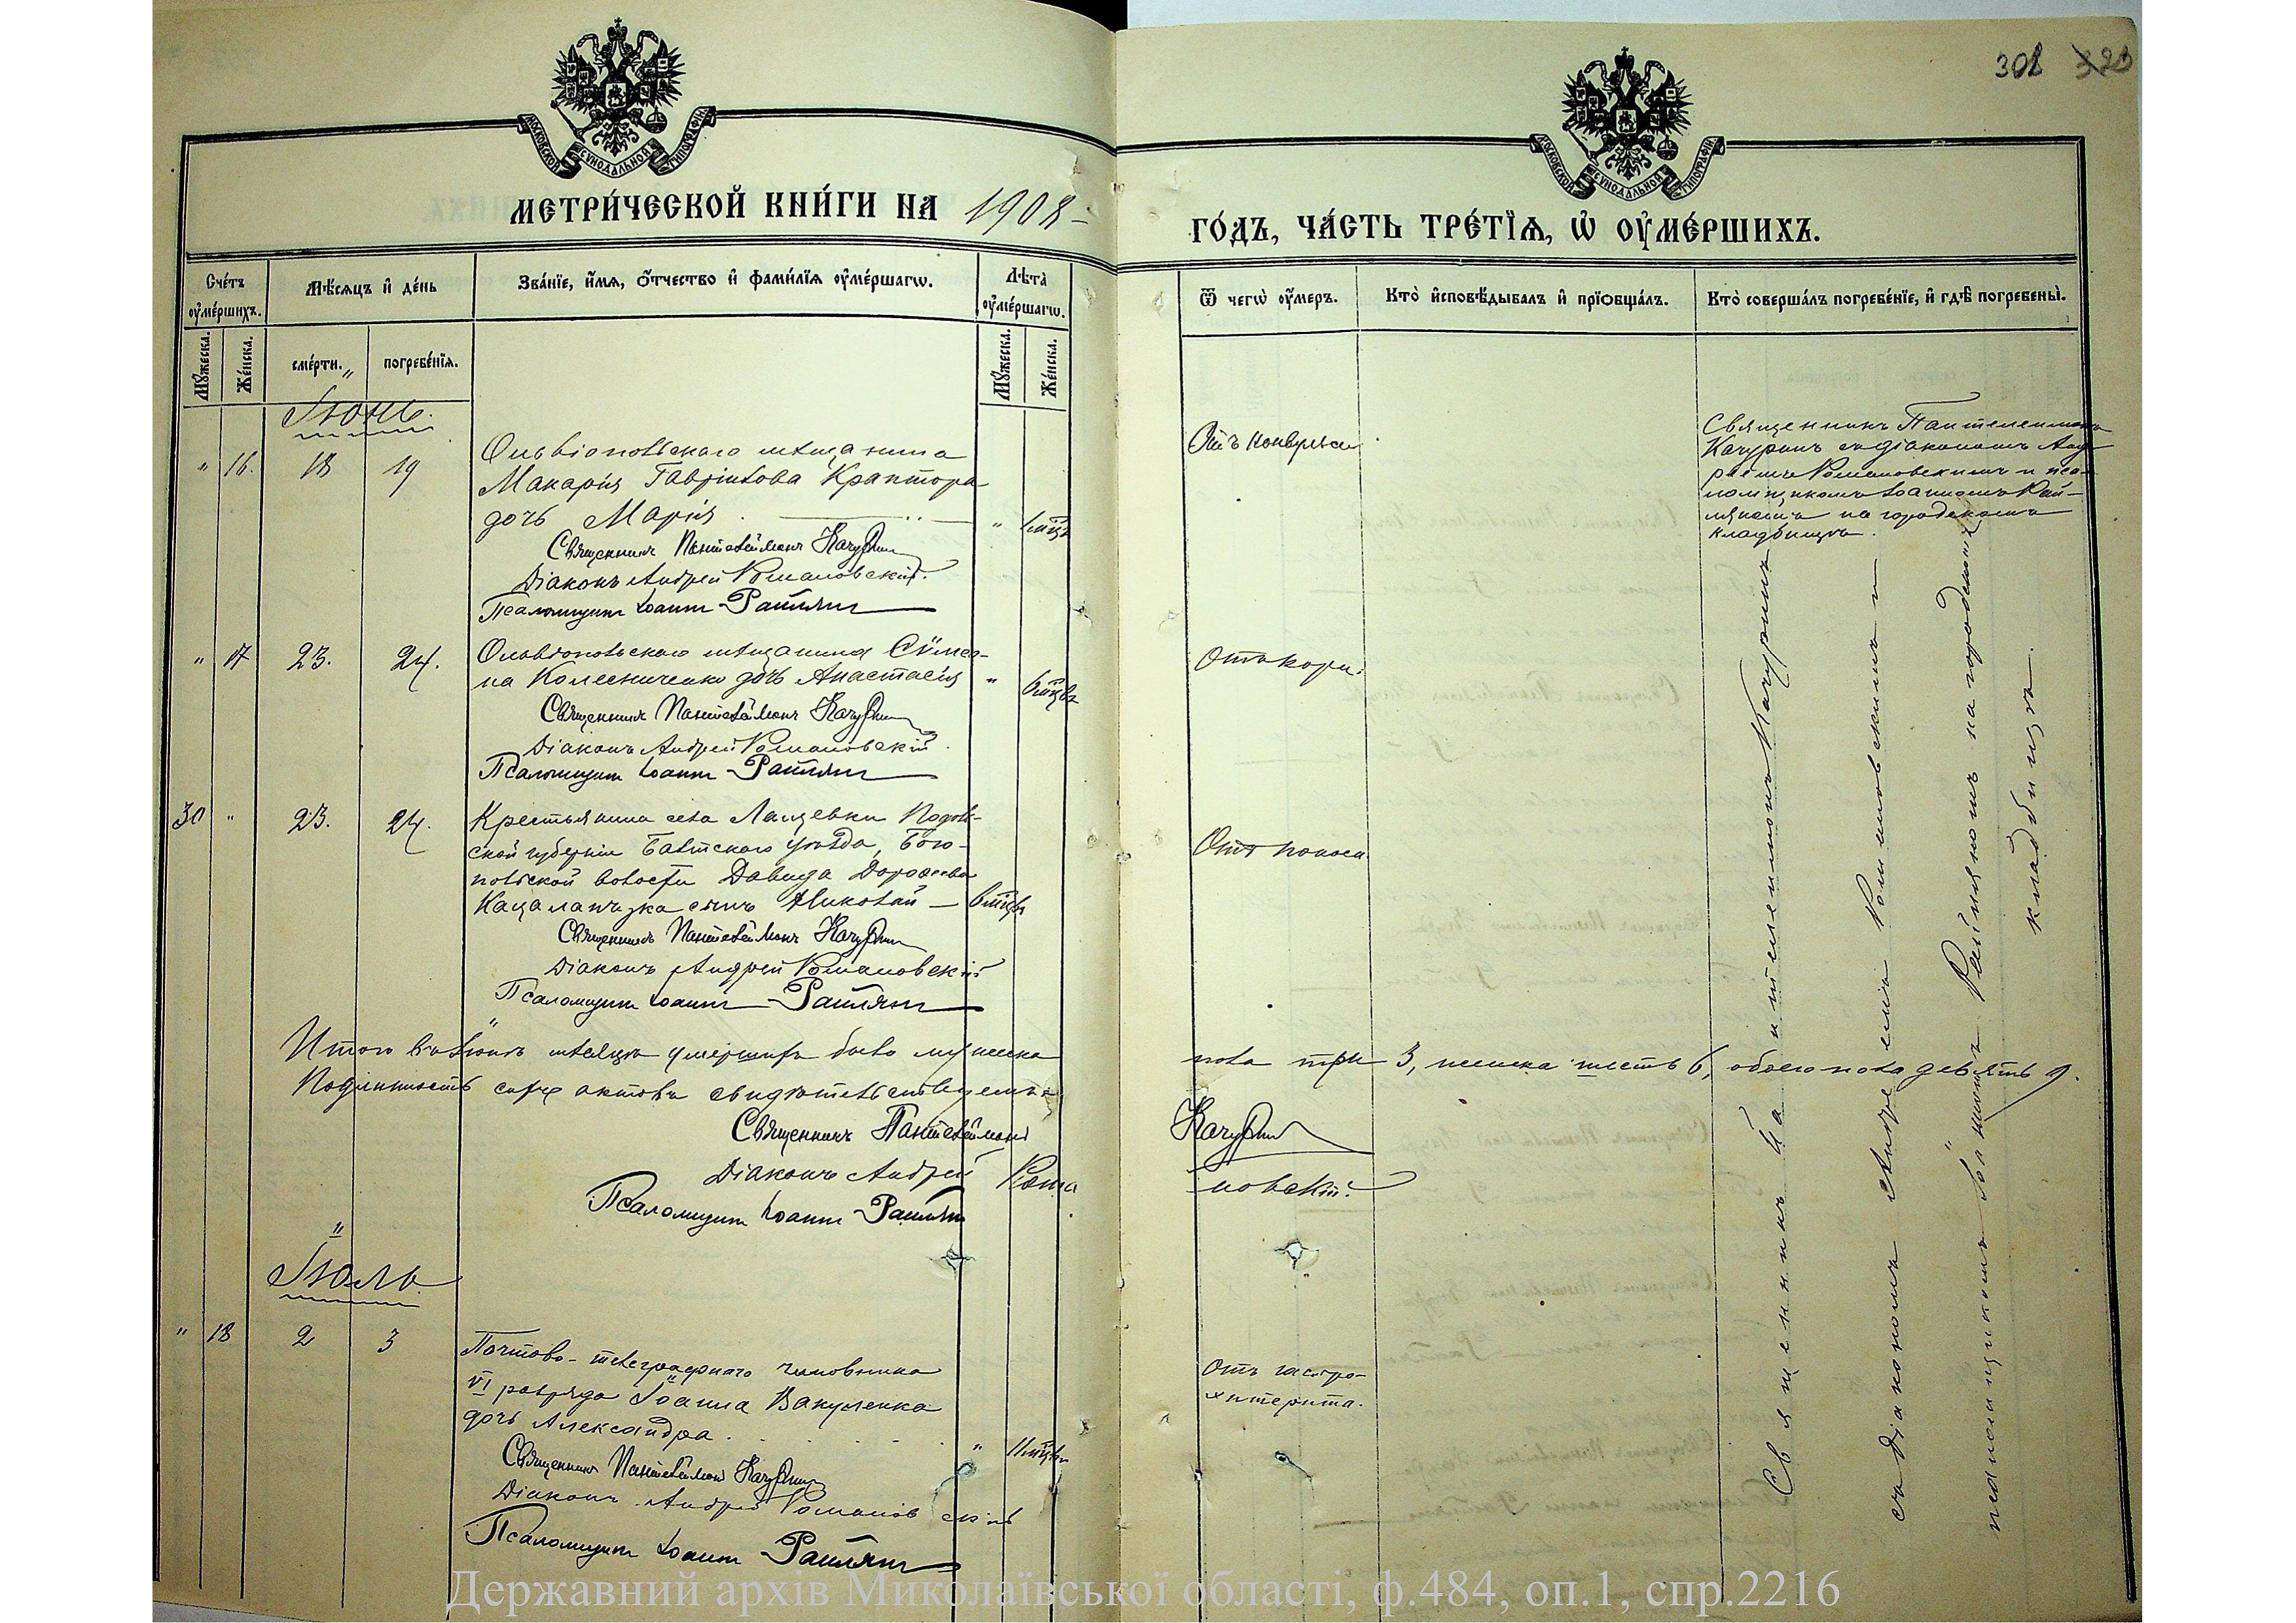 308 328
МОСКОВСКОЙ СѴНОДАЛЬНОЙ ТИПОГРАФІИ
МОСКОВСКОЙ СѴНОДАЛЬНОЙ ТИПОГРАФІИ
МЕТРИ́ЧЕСКОЙ КНИ́ГИ НА 1908
ГО́ДЪ, ЧА́СТЬ ТРЕ́ТЇѦ, Ѽ ОУ҆МЕ́РШИХЪ.
Сче́тъ оу҆ме́ршихъ.
Мѣ́сяцъ и҆ де́нь
Зва́нїе, и҆́мѧ, ѻ҆́тчество и҆ фами́лїѧ оу҆ме́ршагѡ.
Лѣ́та оу҆ме́ршагѡ.
Ѿ чегѡ̀ оу҆́меръ.
Кто̀ и҆сповѣ́дывалъ и҆ прїѡбща́лъ.
Кто̀ соверша́лъ погребе́нїе, и҆ гдѣ̀ погребены̀.
Му́жеска.
Же́нска.
сме́рти.
погребе́нїѧ.
Му́жеска.
Же́нска.
Іюнь.
" 16. 18 19
Ольвіопольскаго мѣщанина
Макарія Гаврілова Крантора
дочь Марія " 6 мѣц
Священникъ Пантелеймонъ Качурин
Діаконъ Андрей Романовскій.
Псаломщикъ Іоаннъ Райлян
Отъ конвульси
Священникъ Пантелеимонъ
Качуринъ съ діакономъ Анд
реемъ Романовскимъ и пса-
ломщикомъ Іоанномъ Рай-
ляномъ на городскомъ
кладбищѣ.
" 17 23. 24.
Ольвіопольскаго мѣщанина Сѵмео-
на Колесниченко дочь Анастасія " 6 мѣцевъ
Священникъ Пантелеймонъ Качурин
Діаконъ Андрей Романовскій.
Псаломщикъ Іоаннъ Райлян
Отъ кори.
30 " 23. 24.
Крестьянина села Лащевки Подоль-
ской губерніи Балтскаго уѣзда, Бого-
польской волости Давида Дорофеева
сынъ Николай — 6 мѣцевъ
Священникъ Пантелеймонъ Качурин
Діаконъ Андрей Романовскій
Псаломщикъ Іоаннъ Райлян
Отъ поноса.
Итого въ Іюнѣ мѣсяцѣ умершихъ было мужеска пола три 3, женска шесть 6, обоего пола девять 9.
Подлинность сихъ актовъ свидѣтельствуемъ:
Священникъ Пантелеймонъ Качурин
Діаконъ Андрей Романовскій.
Псаломщикъ Іоаннъ Райлян
Іюль.
" 18 2 3
Почтово-телеграфнаго чиновника
VI разряда Іоанна Вакуленка
дочь Александра. " 11 мѣцевъ
Священникъ Пантелеймонъ Качурин
Діаконъ Андрей Романовскій
Псаломщикъ Іоаннъ Райлян
Отъ гастро-
энтерита.
Священникъ Пантелеимонъ Качуринъ
съ діакономъ Андреемъ Романовскимъ и
псаломщикомъ Іоанномъ Райляномъ на городскомъ
кладбищѣ.
Державний архів Миколаївської області, ф.484, оп.1, спр.2216